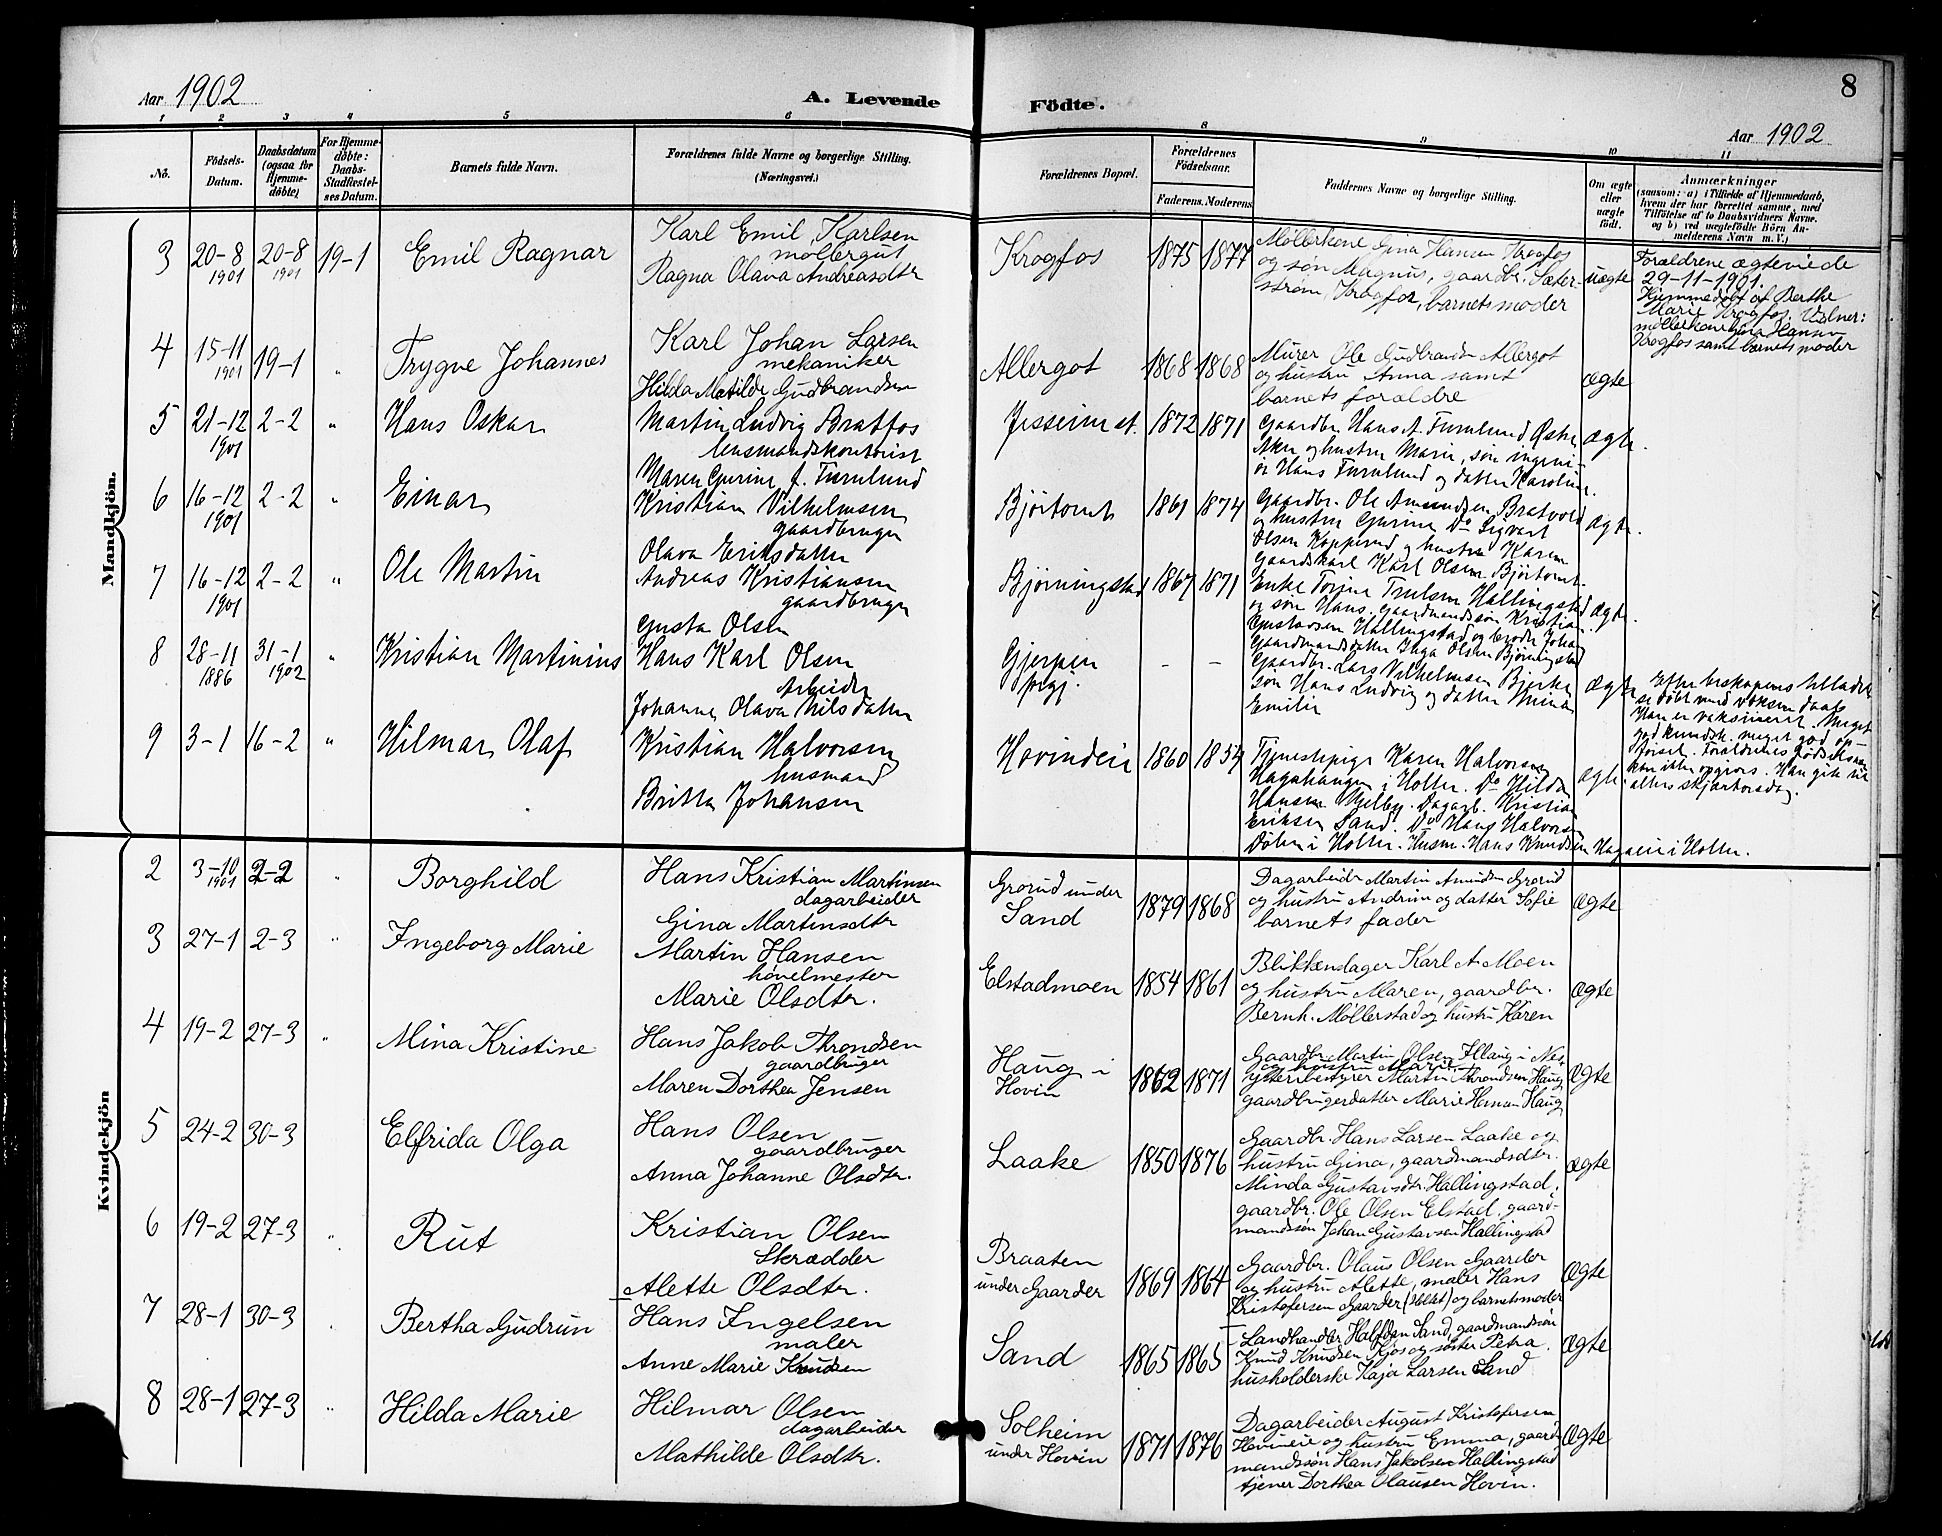 Aar 1902
A. Levende
Födte.
8
Aar 1902
1 2 3 4 5 6 8 9 10 11
No.
Födsels-
Datum.
Daabsdatum
(ogsaa for
Hjemme-
döbte)
For Hjemme-
döbte:
Daabs-
Stadfæstel-
ses Datum.
Barnets fulde Navn.
Forældrenes fulde Navne og borgerlige Stilling.
(Næringsvei.)
Forældrenes Bopæl.
Forældrenes
Födselsaar.
Faderens. Moderens
Faddernes Navne og borgerlige Stilling.
Om ægte
eller
uægte
födt.
Anmærkninger
(saasom: a) i Tilfælde af Hjemmedaab,
hvem der har forrettet samme, med
Tilföielse af to Daabsvidners Navne.
og b) ved uægtefödte Börn An-
melderens Navn m. V.)
Mandkjön.
3 20-8 1901 20-8 1901 19-1 Emil Ragnar
Karl Emil Karlsen
møllergut
Ragna Olava Andreasdtr
Krogfos 1875 1877
Møllerkone Gina Hansen Krogfos
og søn Magnus, gaardbr. Sæter-
strøm, Krogfos, barnets moder
uægte
Forældrene ægteviede
29-11-1901.
Hjemmedøbt af Berthe
Marie Krogfos. Vidner:
møllerkone Gina Hansen
Krogfos samt barnets moder
4 15-11 1901 19-1 " Trygve Johannes
Karl Johan Larsen
mekaniker
Hilda Matilde Gudbrandsen
Allergot 1868 1868
Murer Ole Gudbrandsen Allergot
og hustru Anna samt
barnets forældre
ægte
5 21-12 1901 2-2 " Hans Oskar
Martin Ludvig Bratfos
lensmandskontorist
Maren Gurine f. Furulund
Jesseim st. 1872 1871
Gaardbr. Hans A. Furulund Østre
Aker og hustru Marie, søn ingeni-
ør Hans Furulund og datter Karoline.
ægte.
6 16-12 1901 2-2 " Einar
Kristian Vilhelmsen
gaardbruger
Olava Eriksdatter
Bjørtomt 1861 1874
Gaardbr. Ole Amundsen Bratvold
og hustru Gurine Do Sigvart
Olsen Kopperud og hustru Karen
Gaardskarl Karl Olsen Bjørtomt.
ægte.
7 16-12 1901 2-2 " Ole Martin
Andreas Kristiansen
gaardbruger
Gusta Olsen
Bjørningstad 1867 1871
Enke Torine Truelsen Hallingstad
og søn Hans. Gaardmandssøn Kristian
Gustavsen Hallingstad og broder Johan
Gaardmandsdatter Inga Olsen Bjørningstad
ægte.
8 28-11 1886 31-1 1902 " Kristian Martinius
Hans Karl Olsen
Arbeider
Johanne Olava Nilsdatter
Gjerpen
prgj. - -
Gaardbr. Lars Vilhelmsen Bjerke
søn Hans Ludvig og datter Minda
Emilie
ægte
Efter biskopens tilladel-
se døbt med voksen daab
Han er vaksineret. Meget
god kundsk. meget god op-
førsel. Forældrenes fødselsaar
kan ikke opgives. Han gik til
alters skjærtorsdag.
9 3-1 16-2 " Hilmar Olaf
Kristian Halvorsen
husmand
Britta Johansen
Hovindeie 1860 1854
Tjenestepige Karen Halvorsen
Hagahaugen i Holter. Do Hilda
Hansen Melby. Dagarb. Kristian
Eriksen Sand. Do Hans Halvorsen
Dølen i Holter. Husm. Hans Knudsen Hageeie i Holter.
ægte
Kvindekjön
2 3-10 1901 2-2 " Borghild
Hans Kristian Martinsen
dagarbeider
Gina Martinsdtr
Grorud under
Sand 1879 1868
Dagarbeider Martin Amundsen Grorud
og hustru Andrine og datter Sofie
barnets fader
Ægte
3 27-1 2-3 " Ingeborg Marie
Martin Hansen
høvelmester
Marie Olsdtr.
Elstadmoen 1854 1861
Blikkenslager Karl A. Moen
og hustru Maren, gaardbr.
Bernh. Møllerstad og hustru Karen
Ægte
4 19-2 27-3 " Mina Kristine
Hans Jakob Throndsen
gaardbruger
Maren Dorthea Jensen
Haug i
Hovin 1862 1871
Gaardbr. Martin Olsen Haug i Nes
og hustru Marie
Martin Throndsen Haug
gaardbrugerdatter Marie Haug
Ægte
5 24-2 30-3 Elfrida Olga
Hans Olsen
gaardbruger
Anna Johanne Olsdtr.
Laake 1850 1876
Gaardbr. Hans Larsen Laake og
hustru Gina, gaardmandsdtr.
Minda Gustavsdtr. Hallingstad,
gaardbr. Ole Olsen Elstad, gaard-
mandssøn Johan Gustavsen Hallingstad
Ægte
6 19-2 27-3 " Rut
Kristian Olsen
Skrædder
Alette Olsdtr.
Braaten
under Gaarder 1869 1864
Gaardbr. Olaus Olsen Gaarder
og hustru Alette, maler Hans
Kristofersen Gaarder og barnets moder
Ægte
7 28-1 30-3 Bertha Gudrun
Hans Ingelsen
maler
Anne Marie Knudsen
Sand 1865 1865
Landhandler Halfdan Sand, gaardmandssøn
Knud Knudsen Kjos og søster Petra.
husholderske Kaja Larsen Sand
Ægte
8 28-1 27-3 " Hilda Marie
Hilmar Olsen
dagarbeider
Mathilde Olsdtr.
Solheim
under Hovin 1871 1876
Dagarbeider August Kristofersen
Hovineie og hustru Emma, gaard-
mandssøn Hans Jakobsen Hallingstad
tjener Dorthea Olausen Hovin.
Ægte